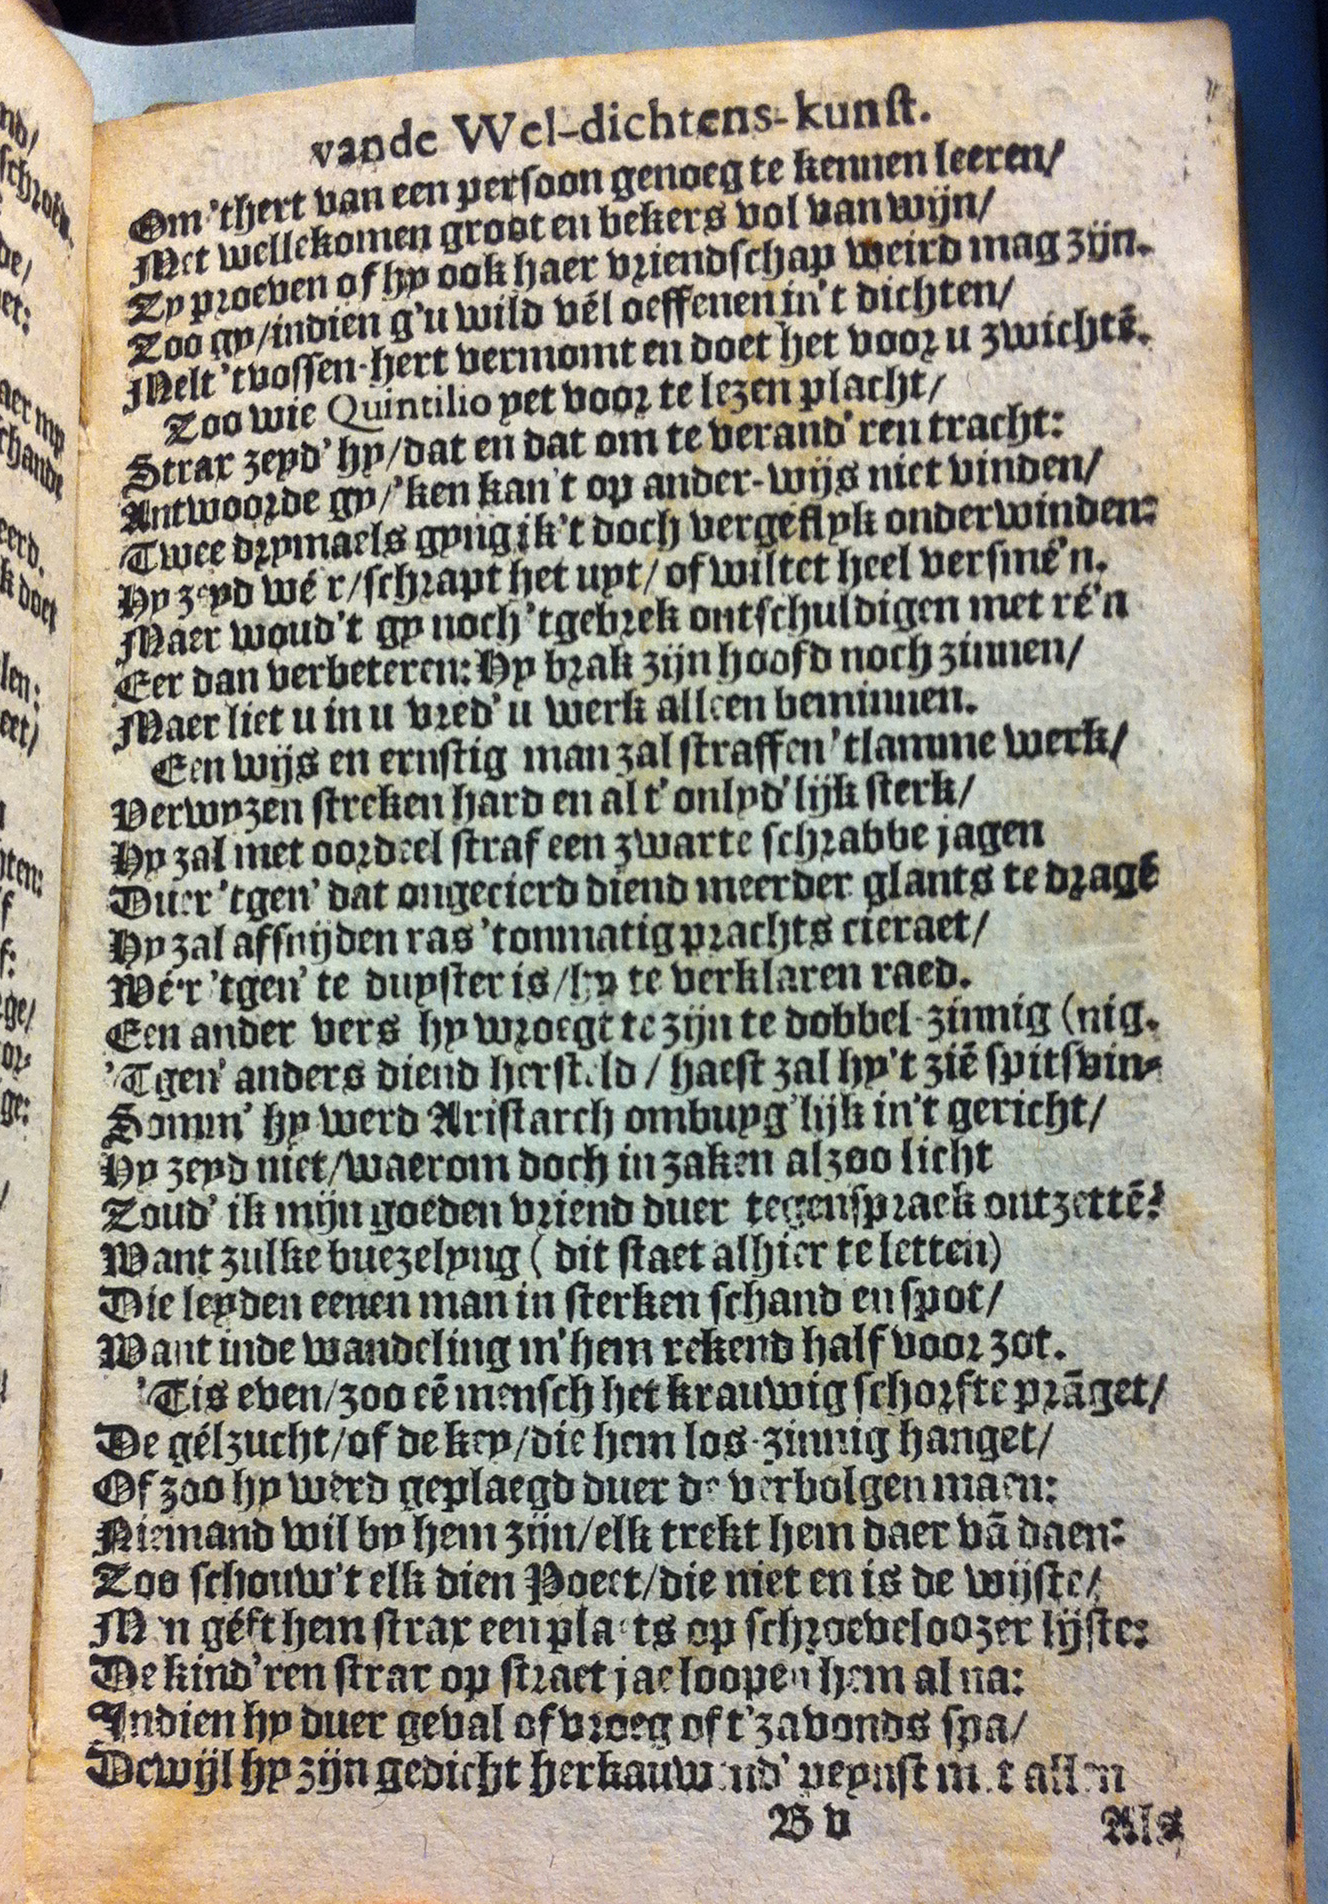 vande Wel-dichtens-kunst.
Om 'thert van een persoon genoeg te kennen leeren/
Met wellekomen groot en bekers vol van wijn/
Zy proeven of hy ook haer vriendschap weird mag zijn.
Zoo gy/indien g'u wild vél oeffenen in't dichten/
Melt 'tvossen-hert vermomt en doet het voor u zwichtē.
Zoo wie Quintilio yet voor te lezen placht/
Strax zeyd' hy/dat en dat om te verand'ren tracht:
Antwoorde gy/'ken kan't op ander-wijs niet vinden/
Twee drymaels gyng ik't doch vergéflyk onderwinden:
Hy zeyd wé'r/schrapt het uyt/of wiltet heel versmé'n.
Maer woud't gy noch 'tgebrek ontschuldigen met ré'n
Eer dan verbeteren: Hy brak zijn hoofd noch zinnen/
Maer liet u in u vred' u werk alleen beminnen.
Een wijs en ernstig man zal straffen 'tlamme werk/
Verwyzen streken hard en al t'onlyd'lijk sterk/
Hy zal met oordeel straf een zwarte schrabbe jagen
Duer 'tgen' dat ongecierd diend meerder glants te dragē
Hy zal affnijden ras 'tonmatig prachts cieraet/
Wé'r 'tgen' te duyster is/hy te verklaren raed.
Een ander vers hy wroegt te zijn te dobbel-zinnig (nig.
'Tgen' anders diend hersteld / haest zal hy't ziē spitsvin-
Somm' hy werd Aristarch ombuyg'lijk in't gericht/
Hy zeyd niet/waerom doch in zaken alzoo licht
Zoud' ik mijn goeden vriend duer tegensprack ontzettē?
Want zulke buezelyng ( dit staet alhier te letten)
Die leyden eenen man in sterken schand en spot/
Want inde wandeling m'hem rekend half voor zot.
'Tis even/zoo eē mensch het krauwig schorfte prāget/
De gélzucht/of de key/die hem los-zinnig hanget/
Of zoo hy werd geplaegd duer de verbolgen maen:
Niemand wil by hem zijn/elk trekt hem daer vā daen:
Zoo schouw't elk dien Poeet/die niet en is de wijste/
Men géft hem strax een plaets op schroeveloozer lijste:
De kind'ren strax op straet jae loopen hem al na:
Indien hy duer geval of vroeg of t'zavonds spa/
Dewijl hy zijn gedicht herkauwend' peynst met allen
B v
Als